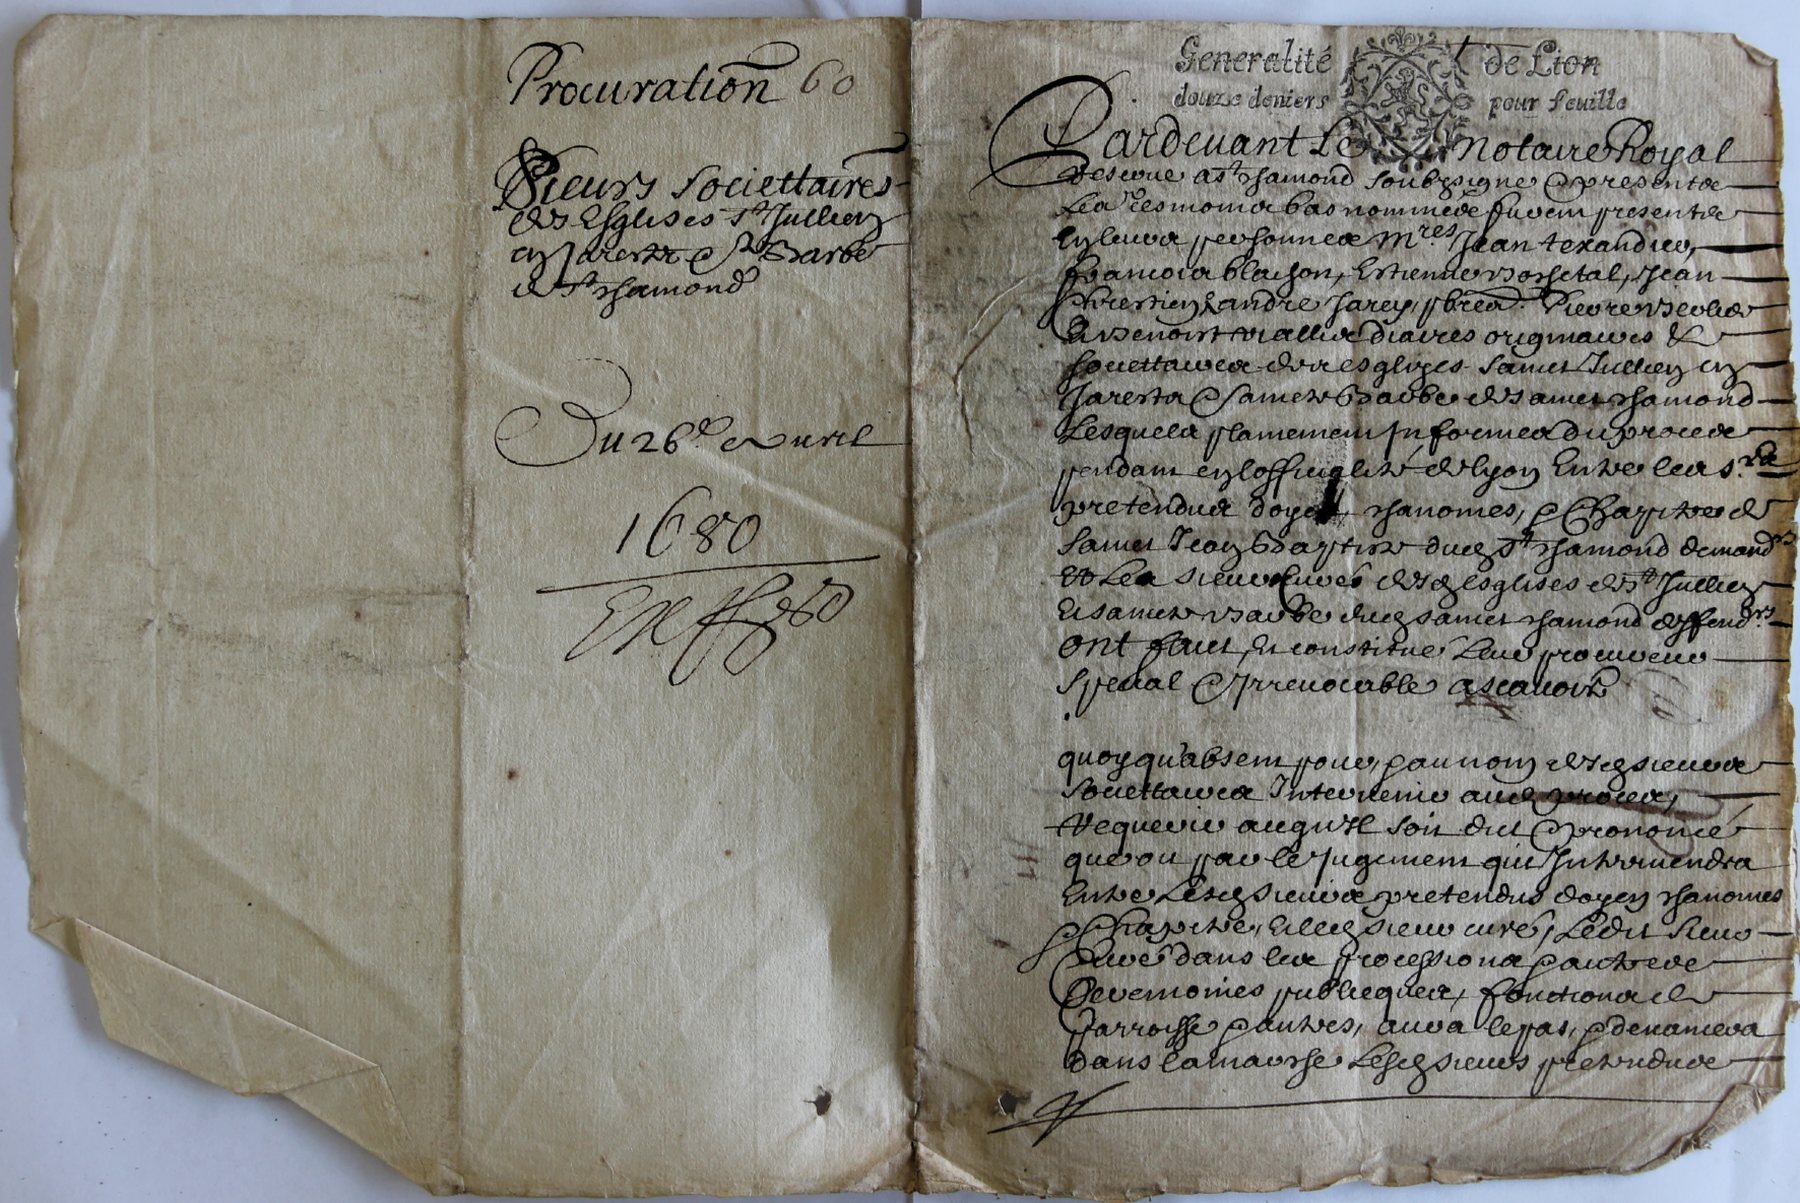 Procuration 60
Sieurs Societtaires
des Esglises St Jullien
en Jarestz & Ste Barbe
de St Chamond
Du 26e Avril
1680
Generalité de Lion
douze deniers pour feuille
Pardevant Le Notaire Royal
reservé a St Chamond soubzsigné & presentz
Les tesmoins bas nommés furent presentz
En leurs personnes Mres Jean
françois blachon, Estienne Jean
Chrestien & andré Jarey, pbres. Pierre
Et benoist diacres originaires &
societtaires des esglizes sainct Jullien en
Jarestz & saincte Barbe de sainct Chamond
Lesquels plainement informés du procès
pendant en lofficialité de lyon Entre les srs
pretendus doyen, chanoines, & Chapitre de
sainct Jean Baptiste dud St Chamond demandrs
Et Les sieurs Curés desd Esglises de St Jullien
Et saincte barbe dud sainct Chamond deffendrs
ont faict, Et constitué Leur procureur
special & Irrevocable ascavoir
quoyqu'absent pour, & au nom desd sieurs
societtaires Intervenir aud procès,
requerir a ce qu'il soit dict & prononcé
que ou par le Jugement qui Interviendra
Entre Lesd sieurs pretendus doyen chanoines
& Chapitre, Et led sieur curé, Ledit sieur
Curé dans les processions & autres
Ceremonies publicques, fonctions de
Parroisse & autres, aura le pas, & devancera
dans la marche Lesd sieurs pretendus